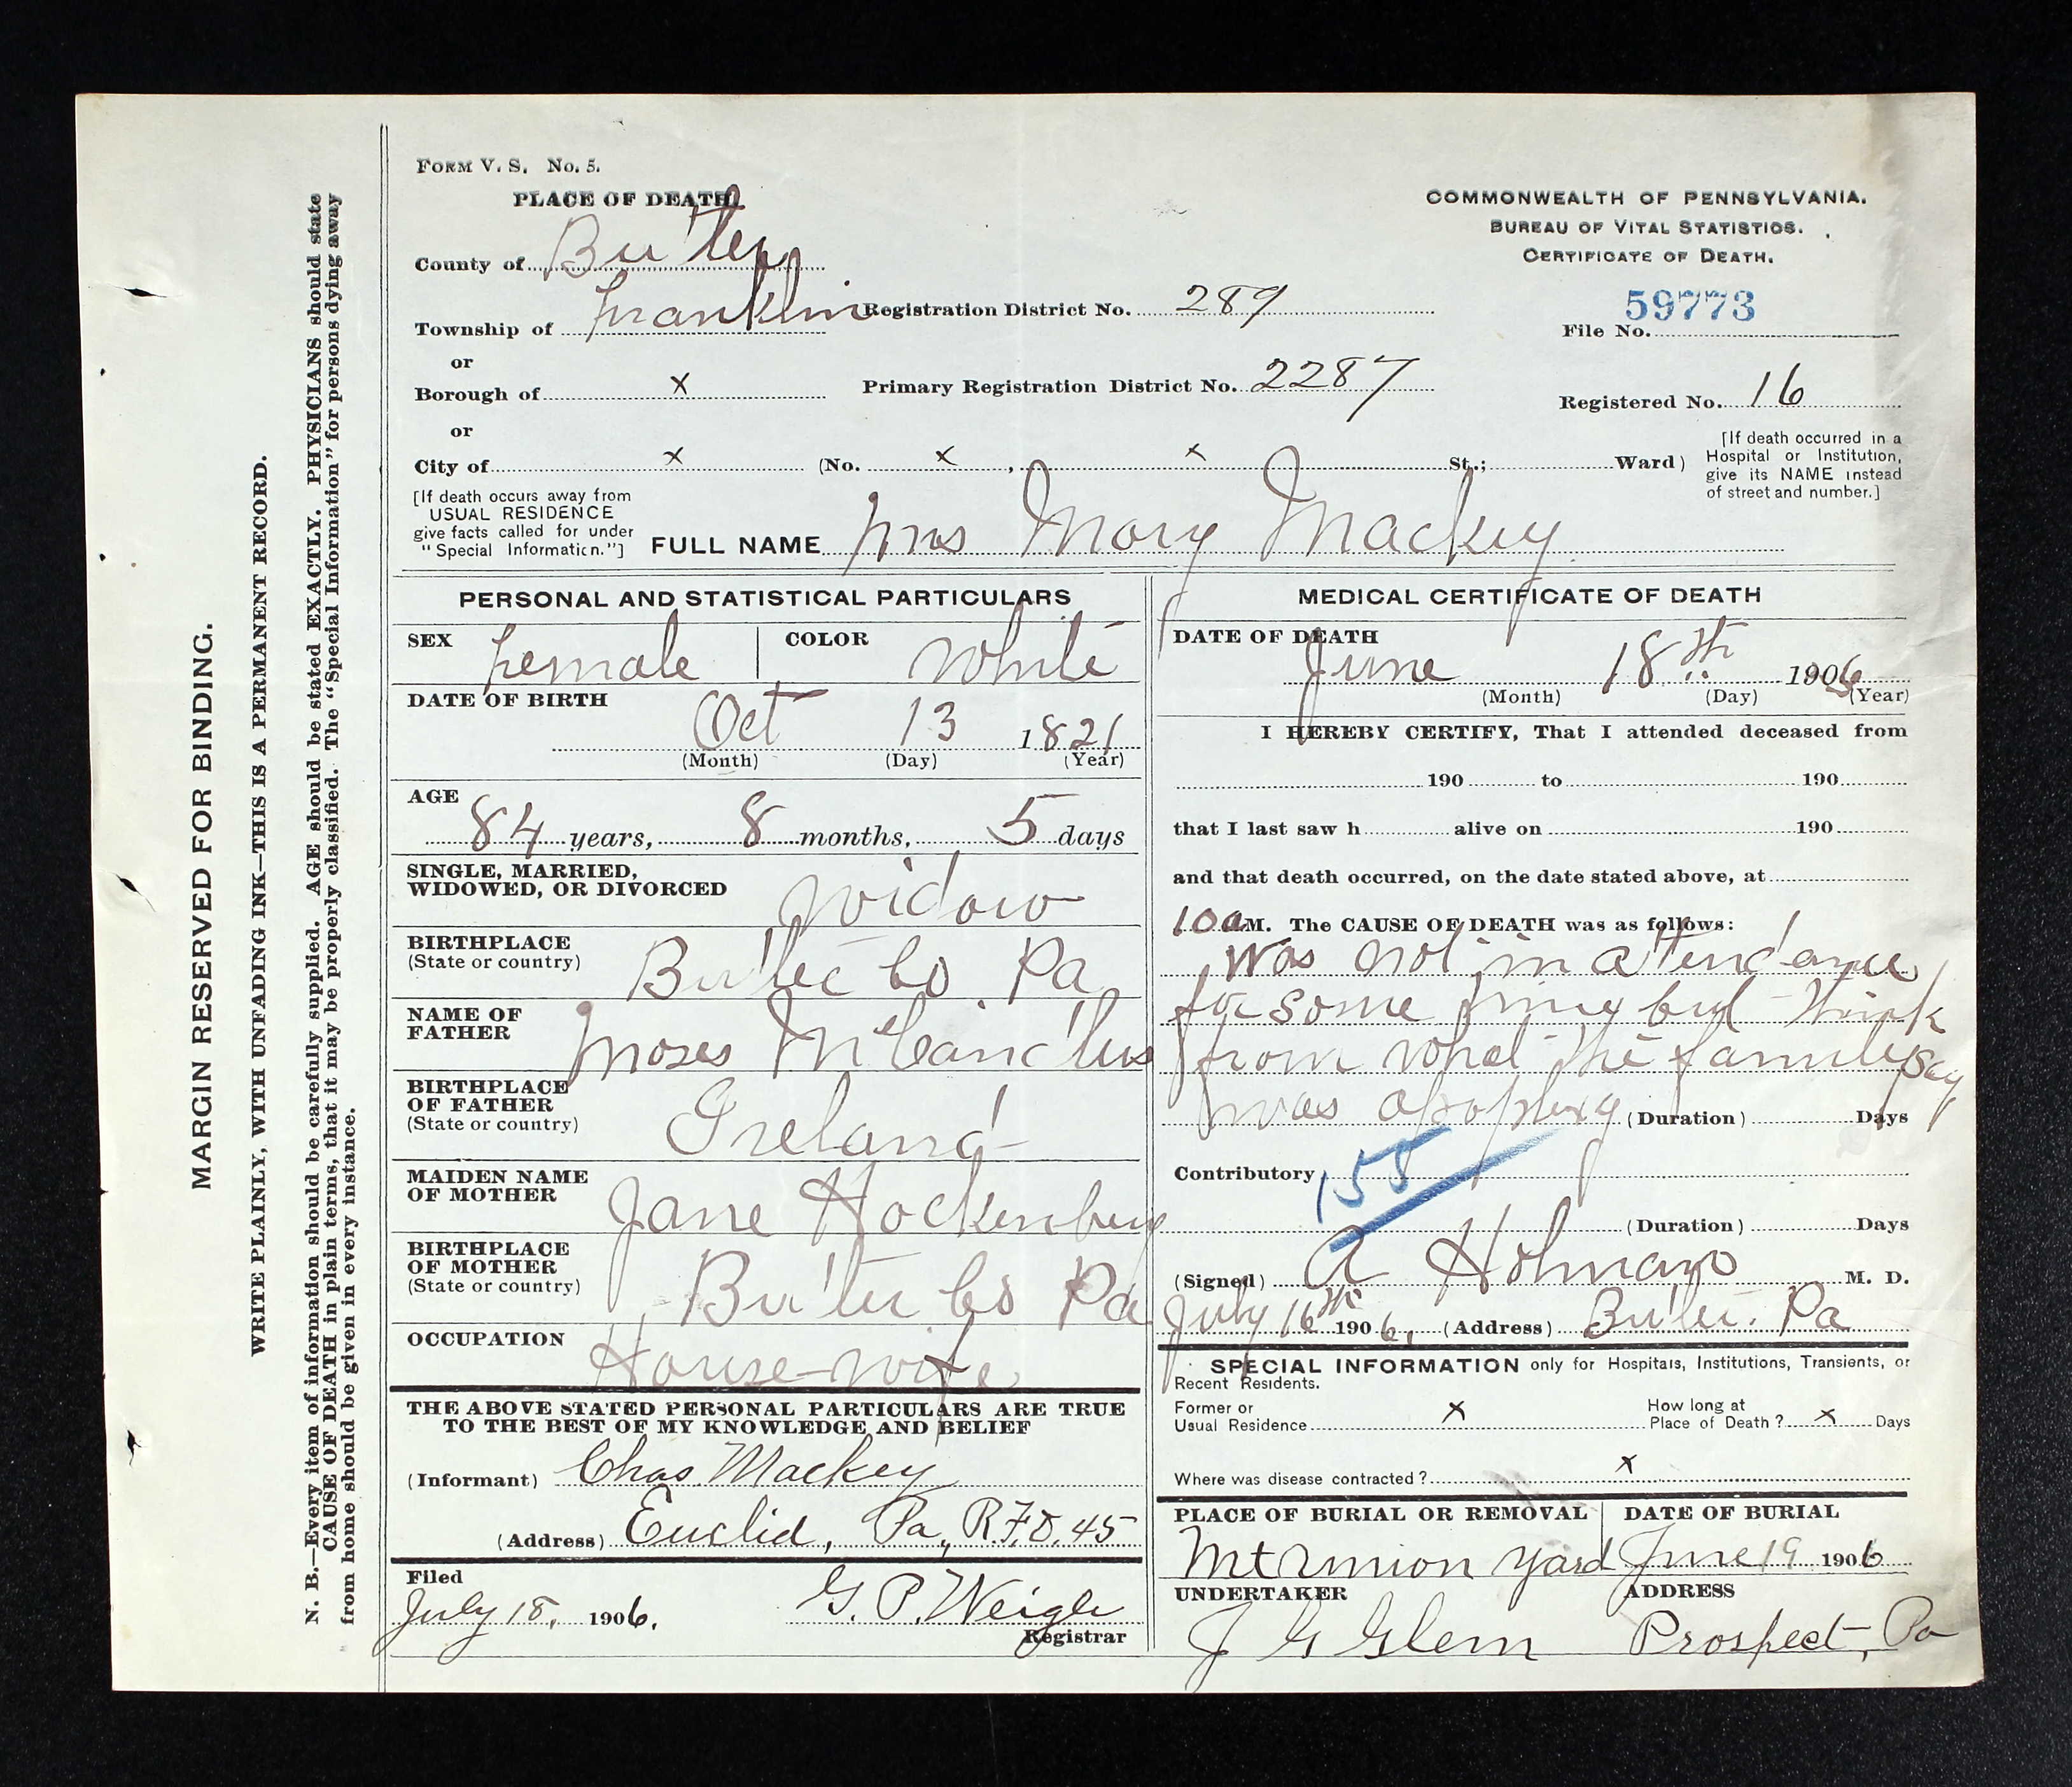 MARGIN RESERVED FOR BINDING.
WRITE PLAINLY, WITH UNFADING INK—THIS IS A PERMANENT RECORD.
N. B.—Every item of information should be carefully supplied. AGE should be stated EXACTLY. PHYSICIANS should state
CAUSE OF DEATH in plain terms, that it may be properly classified. The "Special Information" for persons dying away
from home should be given in every instance.
FORM V. S. No. 5.
PLACE OF DEATH
COMMONWEALTH OF PENNSYLVANIA.
BUREAU OF VITAL STATISTICS.
CERTIFICATE OF DEATH.
County of Butler
Township of Franklin Registration District No. 289
59773
File No.
or
Borough of x Primary Registration District No. 2287
Registered No. 16
or
City of x (No. x , x St.; Ward)
[If death occurred in a
Hospital or Institution,
give its NAME instead
of street and number.]
[If death occurs away from
USUAL RESIDENCE
give facts called for under
"Special Information."]
FULL NAME Mrs Mary Mackey
PERSONAL AND STATISTICAL PARTICULARS
SEX Female COLOR White
DATE OF BIRTH
Oct 13 1821
(Month) (Day) (Year)
AGE
84 years, 8 months, 5 days
SINGLE, MARRIED,
WIDOWED, OR DIVORCED widow
BIRTHPLACE
(State or country) Butler Co. Pa
NAME OF
FATHER Moses McCandless
BIRTHPLACE
OF FATHER
(State or country) Ireland
MAIDEN NAME
OF MOTHER Jane Hockenbury
BIRTHPLACE
OF MOTHER
(State or country) Butler Co Pa
OCCUPATION House-wife
THE ABOVE STATED PERSONAL PARTICULARS ARE TRUE
TO THE BEST OF MY KNOWLEDGE AND BELIEF
(Informant) Chas. Mackey
(Address) Euclid, Pa., R.F.D. 45
Filed
July 18, 1906. G. P. Weigle
Registrar
MEDICAL CERTIFICATE OF DEATH
DATE OF DEATH
June 18th 1906
(Month) (Day) (Year)
I HEREBY CERTIFY, That I attended deceased from
190 to 190
that I last saw h alive on 190
and that death occurred, on the date stated above, at
10 a M. The CAUSE OF DEATH was as follows:
Was not in attendance
for some time but think
from what the family say
was apoplexy (Duration) Days
Contributory 155
(Duration) Days
(Signed) A Holman M. D.
July 16th 1906, (Address) Butler. Pa
SPECIAL INFORMATION only for Hospitals, Institutions, Transients, or
Recent Residents.
Former or
Usual Residence x
How long at
Place of Death? x Days
Where was disease contracted? x
PLACE OF BURIAL OR REMOVAL DATE OF BURIAL
Mt Union Yard June 19 1906
UNDERTAKER ADDRESS
J G Glenn Prospect, Pa